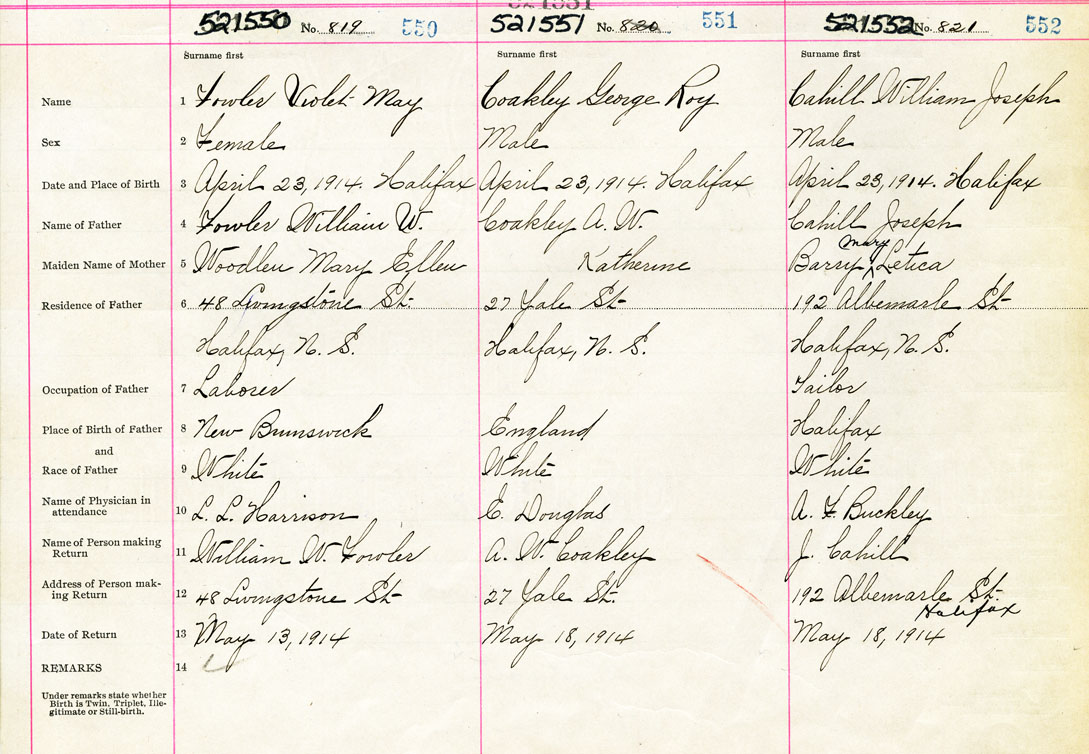 521551
521550 No. 819 550 521551 No. 820 551 521552 No. 821 552
Surname first Surname first Surname first
Name 1 Fowler Violet May Coakley George Roy Cahill William Joseph
Sex 2 Female Male Male
Date and Place of Birth 3 April 23, 1914. Halifax April 23, 1914. Halifax April 23, 1914. Halifax
Name of Father 4 Fowler William W. Coakley A. W. Cahill Joseph
Mary
Maiden Name of Mother 5 Woodlen Mary Ellen Katherine Barry Letica
Residence of Father 6 48 Livingstone St. 27 Yale St. 192 Albemarle St
Halifax, N. S. Halifax, N. S. Halifax, N. S.
Occupation of Father 7 Laborer Tailor
Place of Birth of Father 8 New Brunswick England Halifax
and
Race of Father 9 White White White
Name of Physician in
attendance 10 L. L. Harrison E. Douglas A. F. Buckley
Name of Person making
Return 11 William W. Fowler A. W. Coakley J. Cahill
Address of Person mak-
ing Return 12 48 Livingstone St. 27 Yale St. 192 Albemarle St.
Halifax
Date of Return 13 May 13, 1914 May 18, 1914 May 18, 1914
REMARKS 14
Under remarks state whether
Birth is Twin, Triplet, Ille-
gitimate or Still-birth.